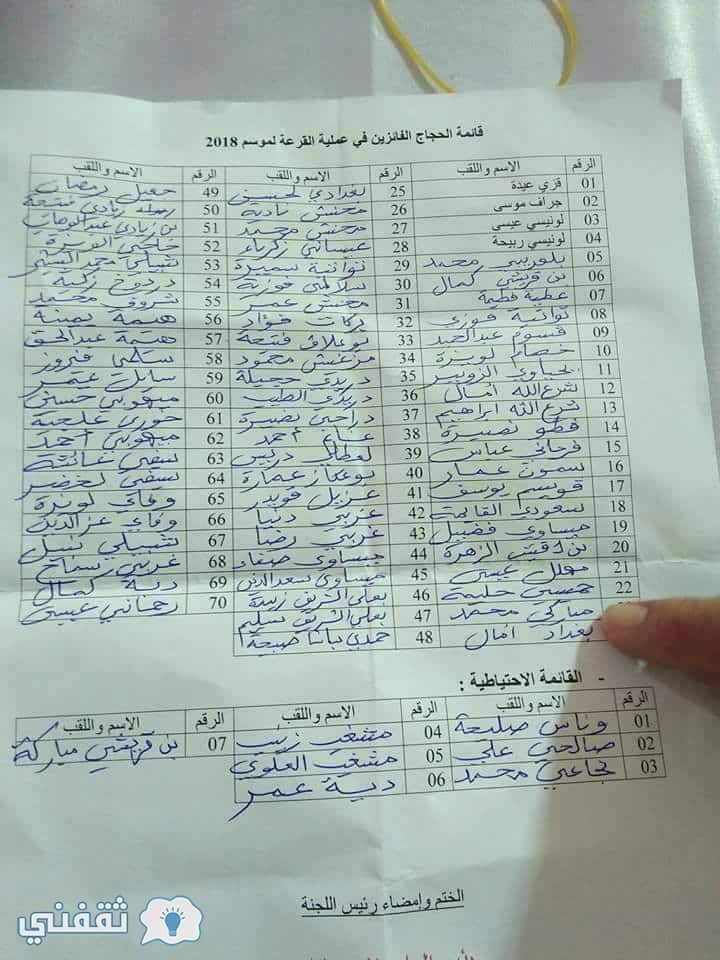 قائمة الحجاج الفائزين في عملية القرعة لموسم 2018
الرقم الاسم واللقب الرقم الاسم واللقب الرقم الاسم واللقب
01 قزي عيدة 25 بغدادي لحسن 49 جعيل رمضان
02 جراف موسى 26 مخنش نادية 50
03 لونيسي عيسى 27 مخنش محمد 51 بن زيادي عبد الوهاب
04 لونيسي ربيحة 28 عيساني زكرياء 52
05 بلعريبي محمد 29 نواتية سميرة 53
06 بن قريشي كمال 30 سلامي فوزية 54 دردوخ زكية
07 عطية فطيمة 31 مخنش عمر 55 شروف محمد
08 نواتية فوزي 32 بركات فؤاد 56 هتمة يمينة
09 قسوم عبد الحميد 33 بوعلاق فتيحة 57 هتمة عبد الحق
10 خصام لويزة 34 مزغيش محمود 58 سلمى فيروز
11 يحياوي الزوبير 35 دريدي جميلة 59 سايل عمر
12 شرع الله أمال 36 دريدي الطيب 60 ميهوبي حسين
13 شرع الله ابراهيم 37 دراجي نصيرة 61
14 قطو نصيرة 38 عناب أحمد 62 ميهوبي أحمد
15 فرحاني عباس 39 63
16 عمار 40 بوعكاز عمارة 64 لخضر
17 قويسم يوسف 41 قويدر 65 وفاي لويزة
18 سعودي 42 غربي دنيا 66 وفاي عز الدين
19 عيساوي فضيل 43 غربي رضا 67 شبيلي
20 الزهرة 44 عيساوي صفاء 68 غربي
21 عيسى 45 عيساوي سعد الدين 69 دية كمال
22 حمسي حليمة 46 بعلي الشريف زبيدة 70 رحماني عيسى
مباركي محمد 47 بعلي الشريف سليم
بغداد أمال 48 حمدي باشا
- القائمة الاحتياطية :
الرقم الاسم واللقب الرقم الاسم واللقب الرقم الاسم واللقب
01 وناس صليحة 04 زينب 07 بن قريشي مباركة
02 صالحي علي 05 العلوي
03 محمد 06 دية عمر
الختم وإمضاء رئيس اللجنة
ثقفني